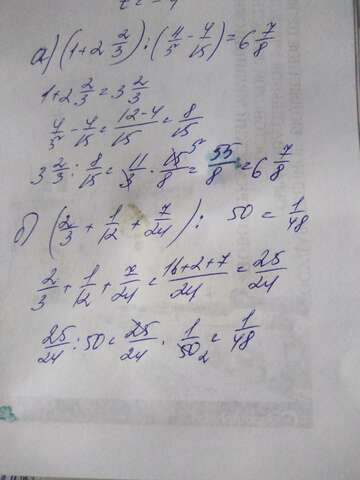 а) (1+2 2/3) : (4/5 - 4/15) = 6 7/8
1+2 2/3 = 3 2/3
4/5 - 4/15 = 12-4/15 = 8/15
3 2/3 : 8/15 = 11/3 · 15/8 = 55/8 = 6 7/8
б) (2/3 + 1/12 + 7/24) : 50 = 1/48
2/3 + 1/12 + 7/24 = 16+2+7/24 = 25/24
25/24 : 50 = 25/24 · 1/50 2 = 1/48